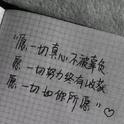 “愿一切真心不被辜负
愿一切努力终有收获
愿一切如你所愿”♡